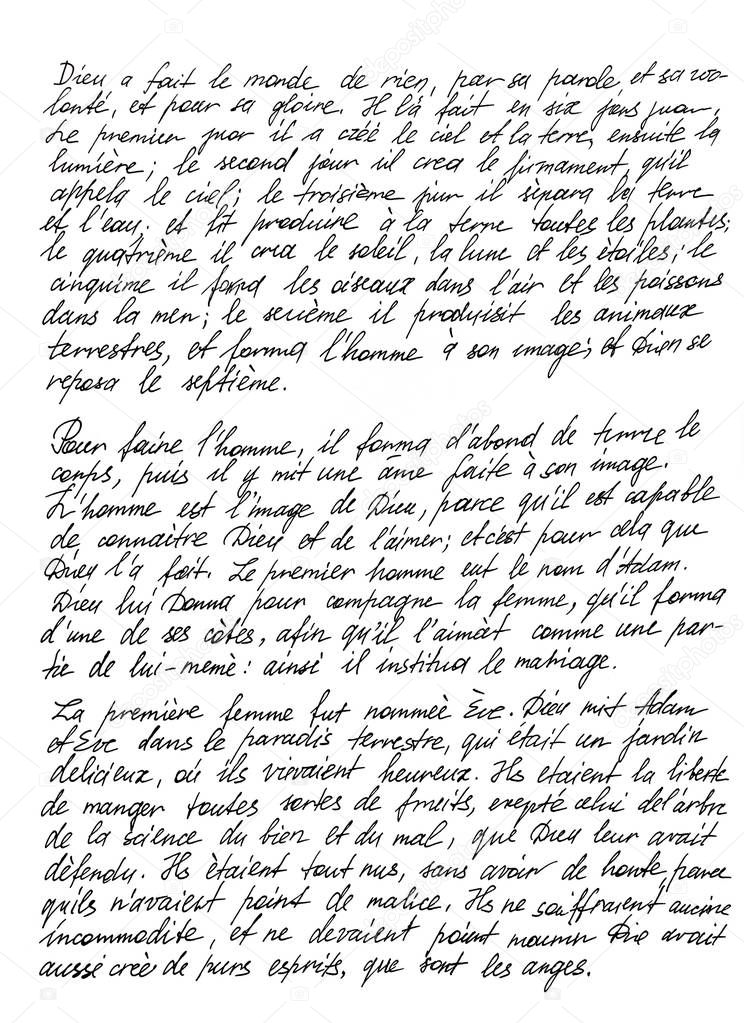 Dieu a fait le monde de rien, par sa parole et sa vo-
lonté, et pour sa gloire. Il l'a fait en six jours
Le premier jour il a créé le ciel et la terre, ensuite la
lumière; le second jour il crea le firmament, qu'il
appela le ciel; le troisième jour il sèpara la terre
et l'eau, et fit produire à la terre toutes les plantes;
le quatrième il crea le soleil, la lune et les ètoiles; le
cinquime il forma les oiseaux dans l'air et les poissons
dans la mer; le sexième il produisit les animaux
terrestres, et forma l'homme à son image; et Dieu se
reposa le septième.
Pour faire l'homme, il forma d'abord de terre le
corps, puis il y mit une âme faite à son image.
L'homme est l'image de Dieu, parce qu'il est capable
de connaitre Dieu et de l'aimer; et c'est pour cela que
Dieu l'a fait. Le premier homme eut le nom d'Adam.
Dieu lui Donna pour compagne la femme, qu'il forma
d'une de ses còtes, afin qu'il l'aimàt comme une par-
tie de lui-memè: ainsi il institua le mariage.
La première femme fut nommèe Ève. Dieu mit Adam
et Eve dans le paradis terrestre, qui était un jardin
delicieux, où ils vievaient heureux. Ils etaient la liberte
de manger toutes sortes de fruits, exepté celui de l'arbre
de la science du bien et du mal, que Dieu leur avait
dèfendu. Ils ètaient tout nus, sans avoir de honte, parce
qu'ils n'avaient point de malice. Ils ne souffraient aucune
incommodite, et ne devaient point mourir Die avait
aussi crèè de purs esprits, que sont les anges.